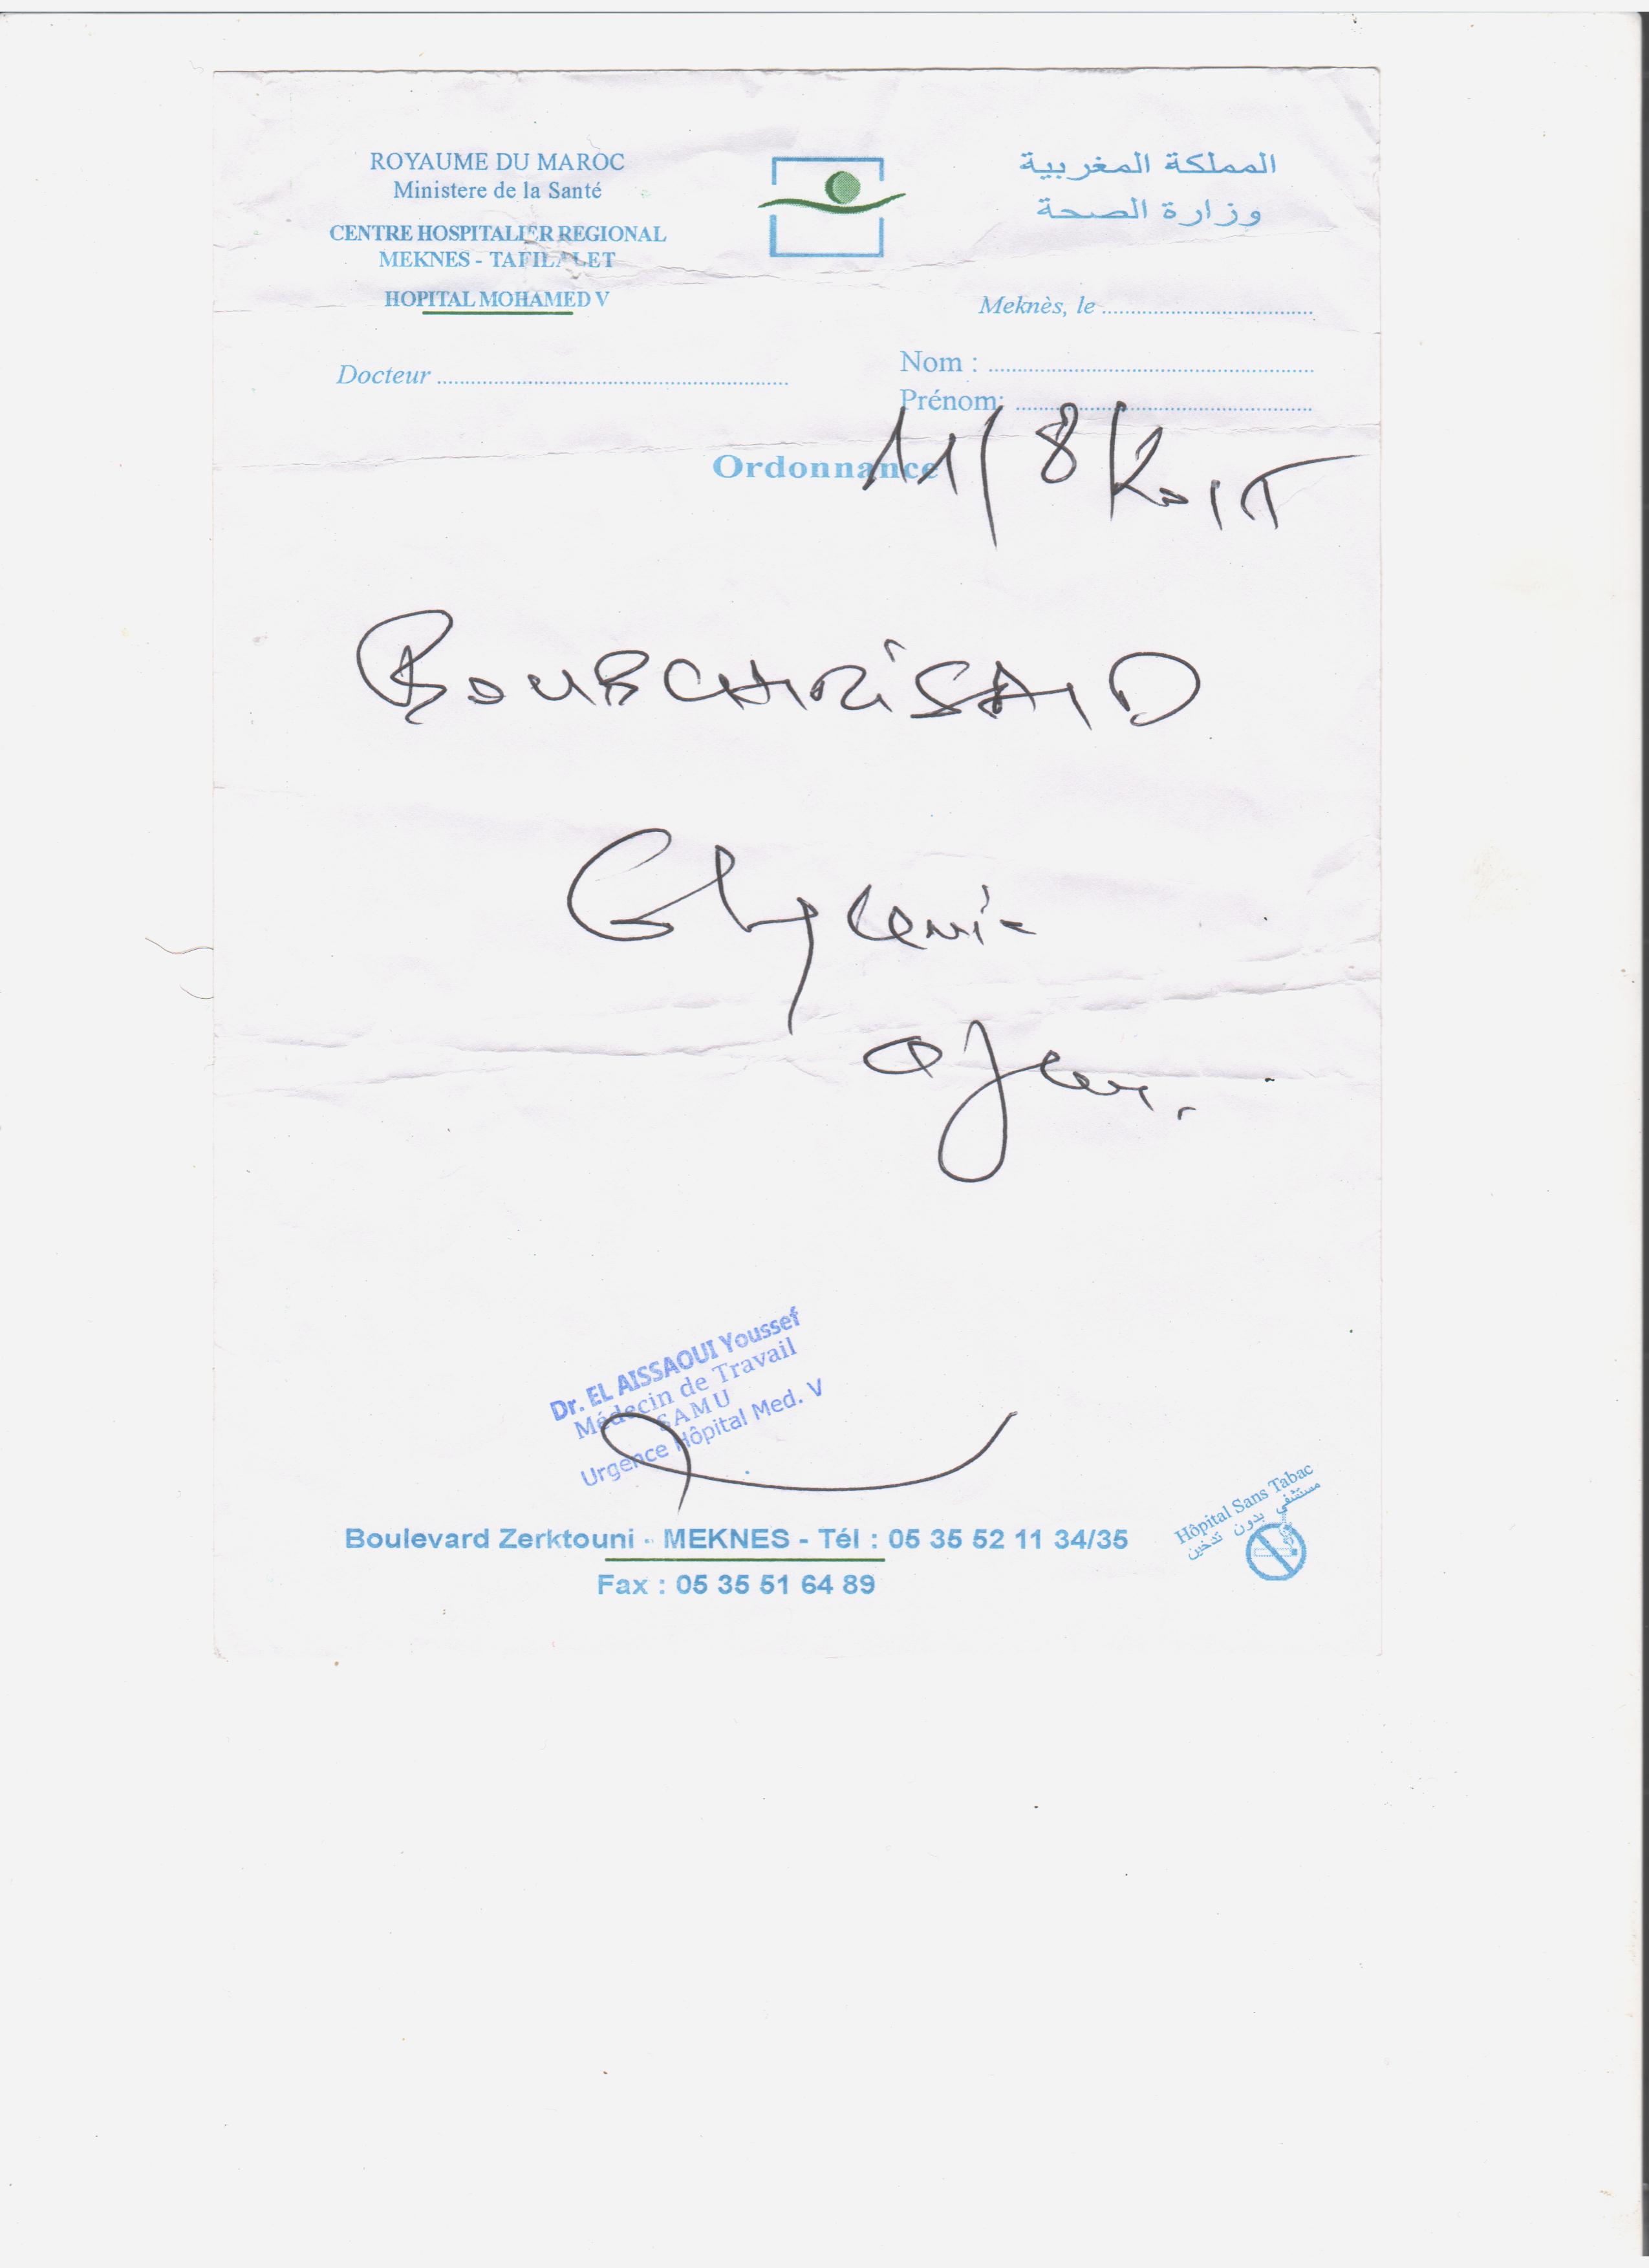 ROYAUME DU MAROC
Ministere de la Santé
CENTRE HOSPITALIER REGIONAL
MEKNES - TAFILALET
HOPITAL MOHAMED V
المملكة المغربية
وزارة الصحة
Meknès, le
Docteur
Nom :
Prénom:
Ordonnance
11/8/2017
BOUBCHRI SAID
Glycémie
a Jeun.
Dr. EL AISSAOUI Youssef
Médecin de Travail
SAMU
Urgence Hôpital Med. V
Boulevard Zerktouni - MEKNES - Tél : 05 35 52 11 34/35
Fax : 05 35 51 64 89
Hôpital Sans Tabac
مستشفى بدون تدخين